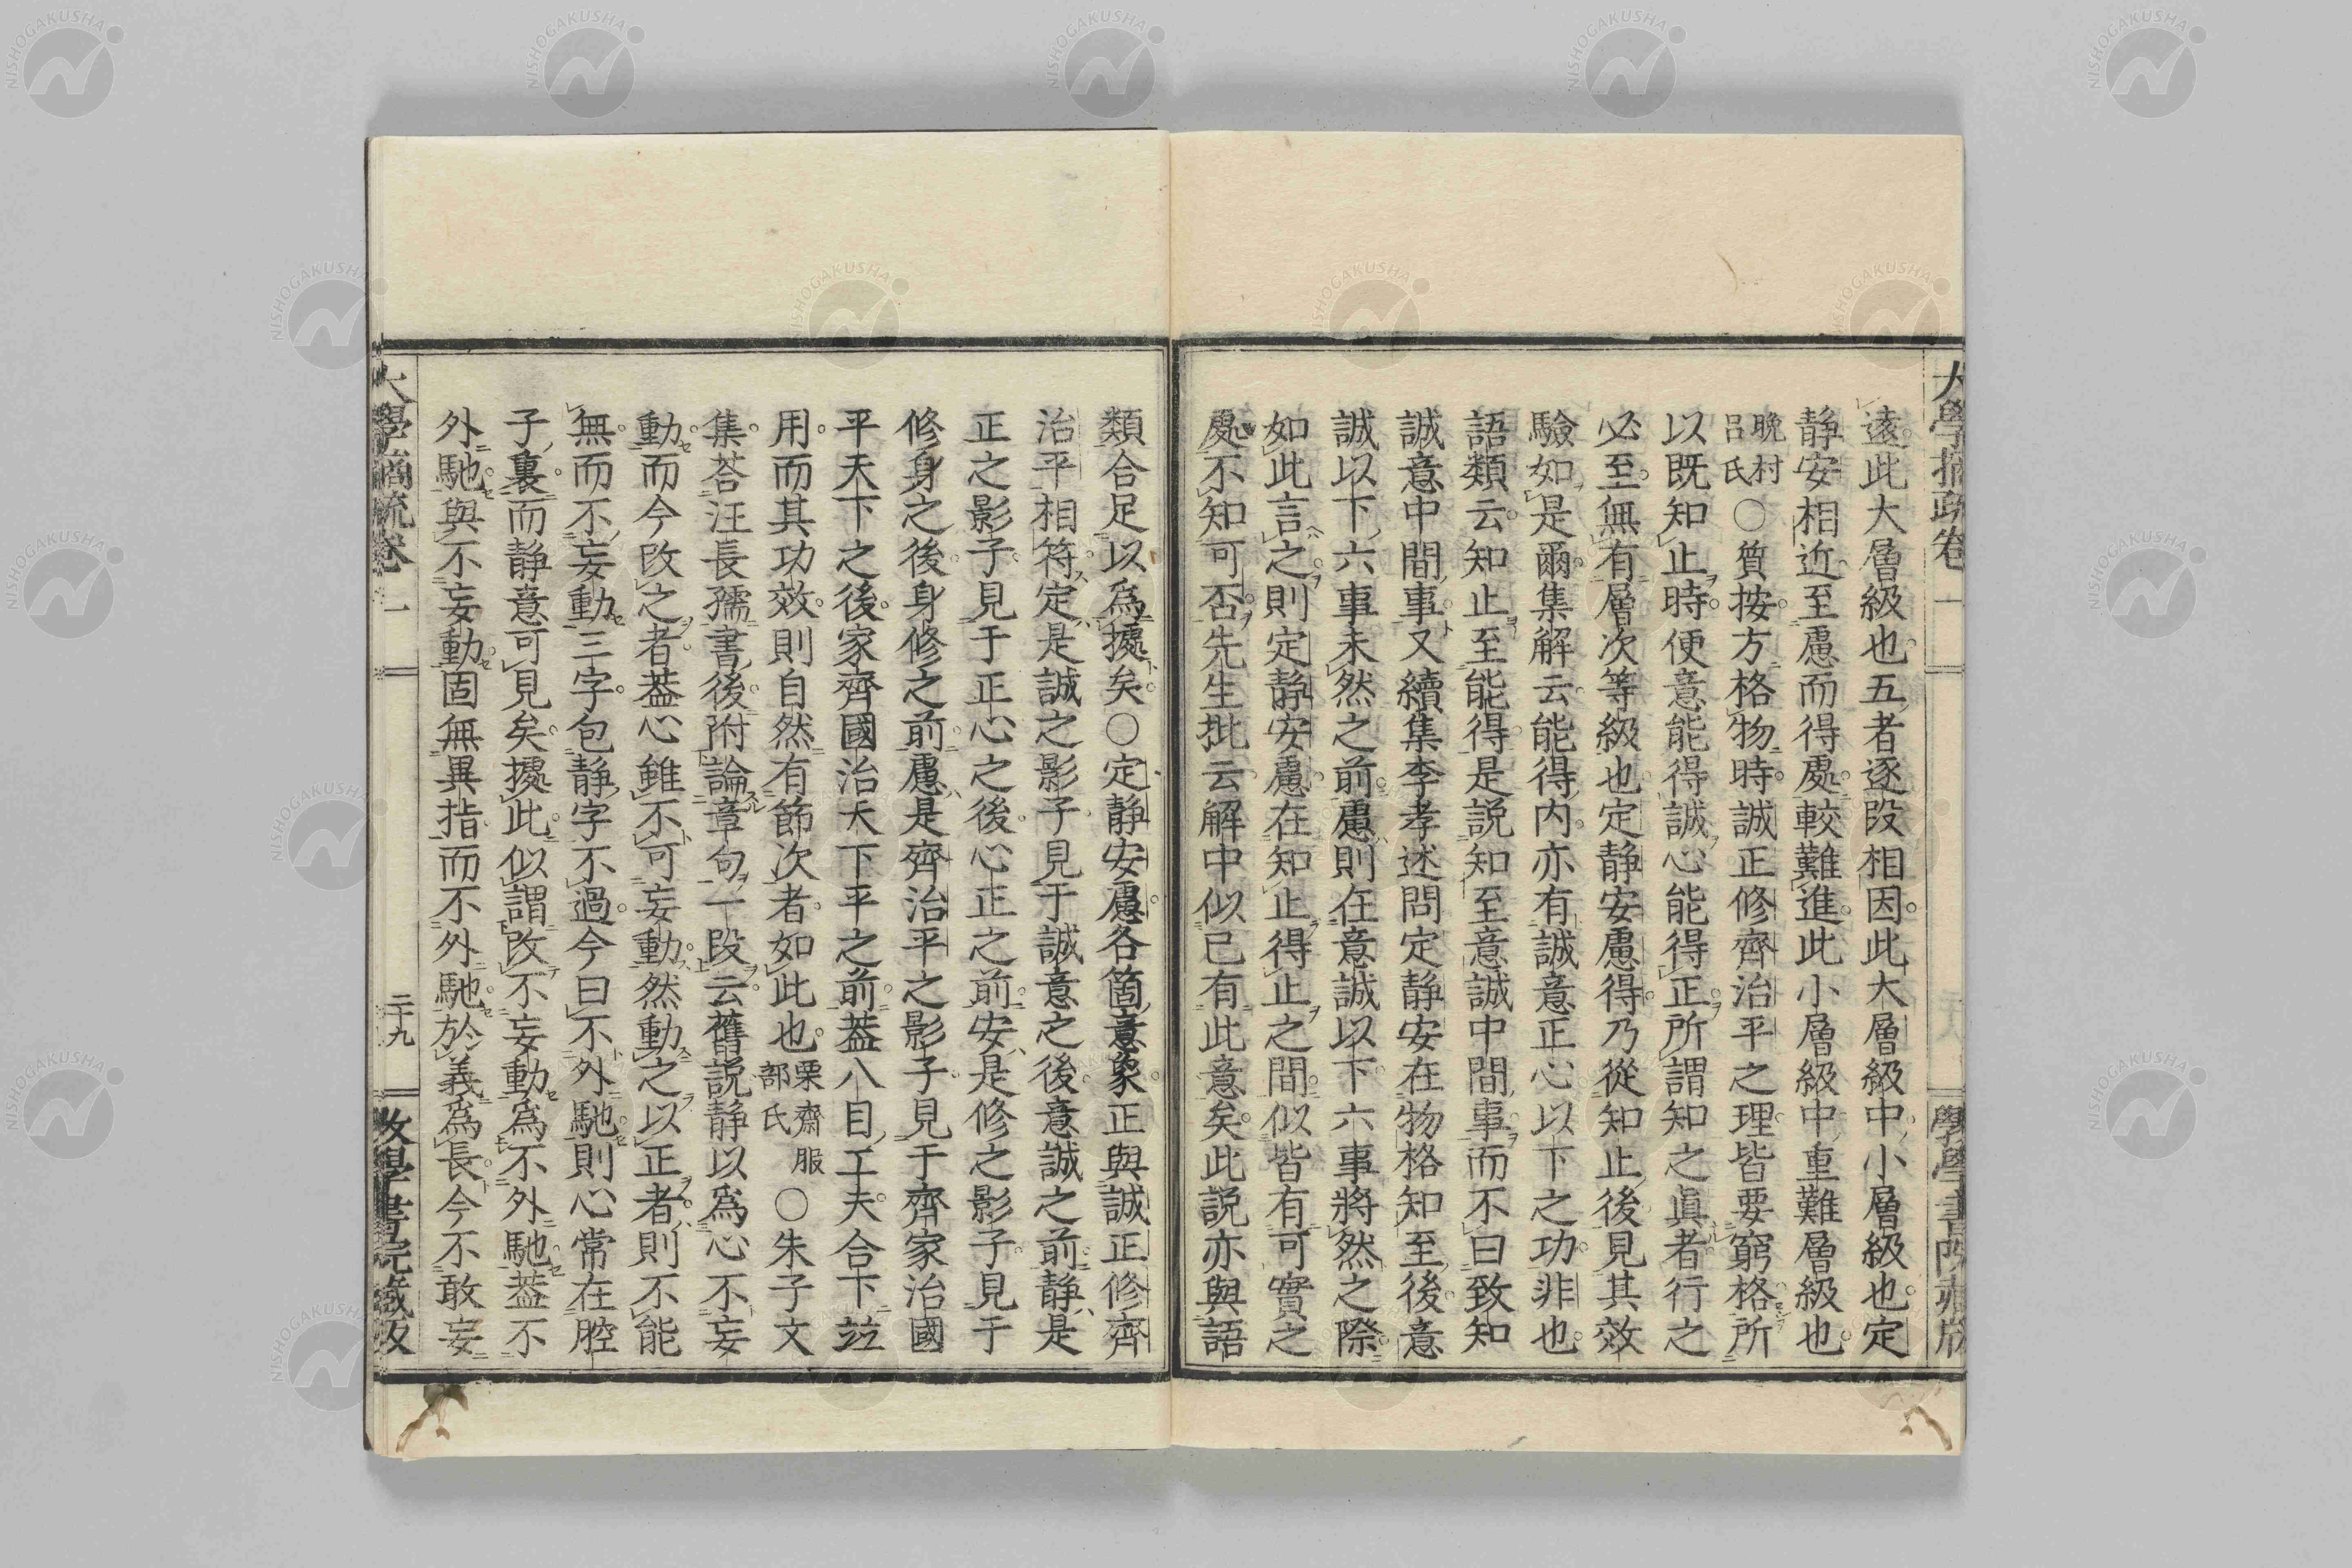 遠此大層級也五者逐段相因此大層級中小層級也定
靜安相近至慮而得處較難進此小層級中重難層級也
晩村呂氏○質按方格物時誠正修齊治平之理皆要窮格所
以既知止時便意能得誠心能得正所謂知之眞者行之
必至無有層次等級也定靜安慮得乃從知止後見其效
驗如是爾集解云能得内亦有誠意正心以下之功非也
語類云知止至能得是説知至意誠中間事而不曰致知
誠意中間事又續集李孝述問定靜安在物格知至後意
誠以下六事未然之前慮則在意誠以下六事將然之際
如此言之則定靜安慮在知止得止之間似皆有可實之
處不知可否先生批云解中似已有此意矣此説亦與語
類合足以爲據矣○定靜安慮各箇意象正與誠正修齊
治平相符定是誠之影子見于誠意之後意誠之前靜是
正之影子見于正心之後心正之前安是修之影子見于
修身之後身修之前慮是齊治平之影子見于齊家治國
平天下之後家齊國治天下平之前葢八目工夫合下竝
用而其功效則自然有節次者如此也栗齋服部氏○朱子文
集荅汪長孺書後附論章句一段云舊説靜以爲心不妄
動而今改之者葢心雖不可妄動然動之以正者則不能
無而不妄動三字包靜字不過今曰不外馳則心常在腔
子裏而靜意可見矣據此似謂改不妄動爲不外馳葢不
外馳與不妄動固無異指而不外馳於義爲長今不敢妄
大學摘疏卷一
二十九